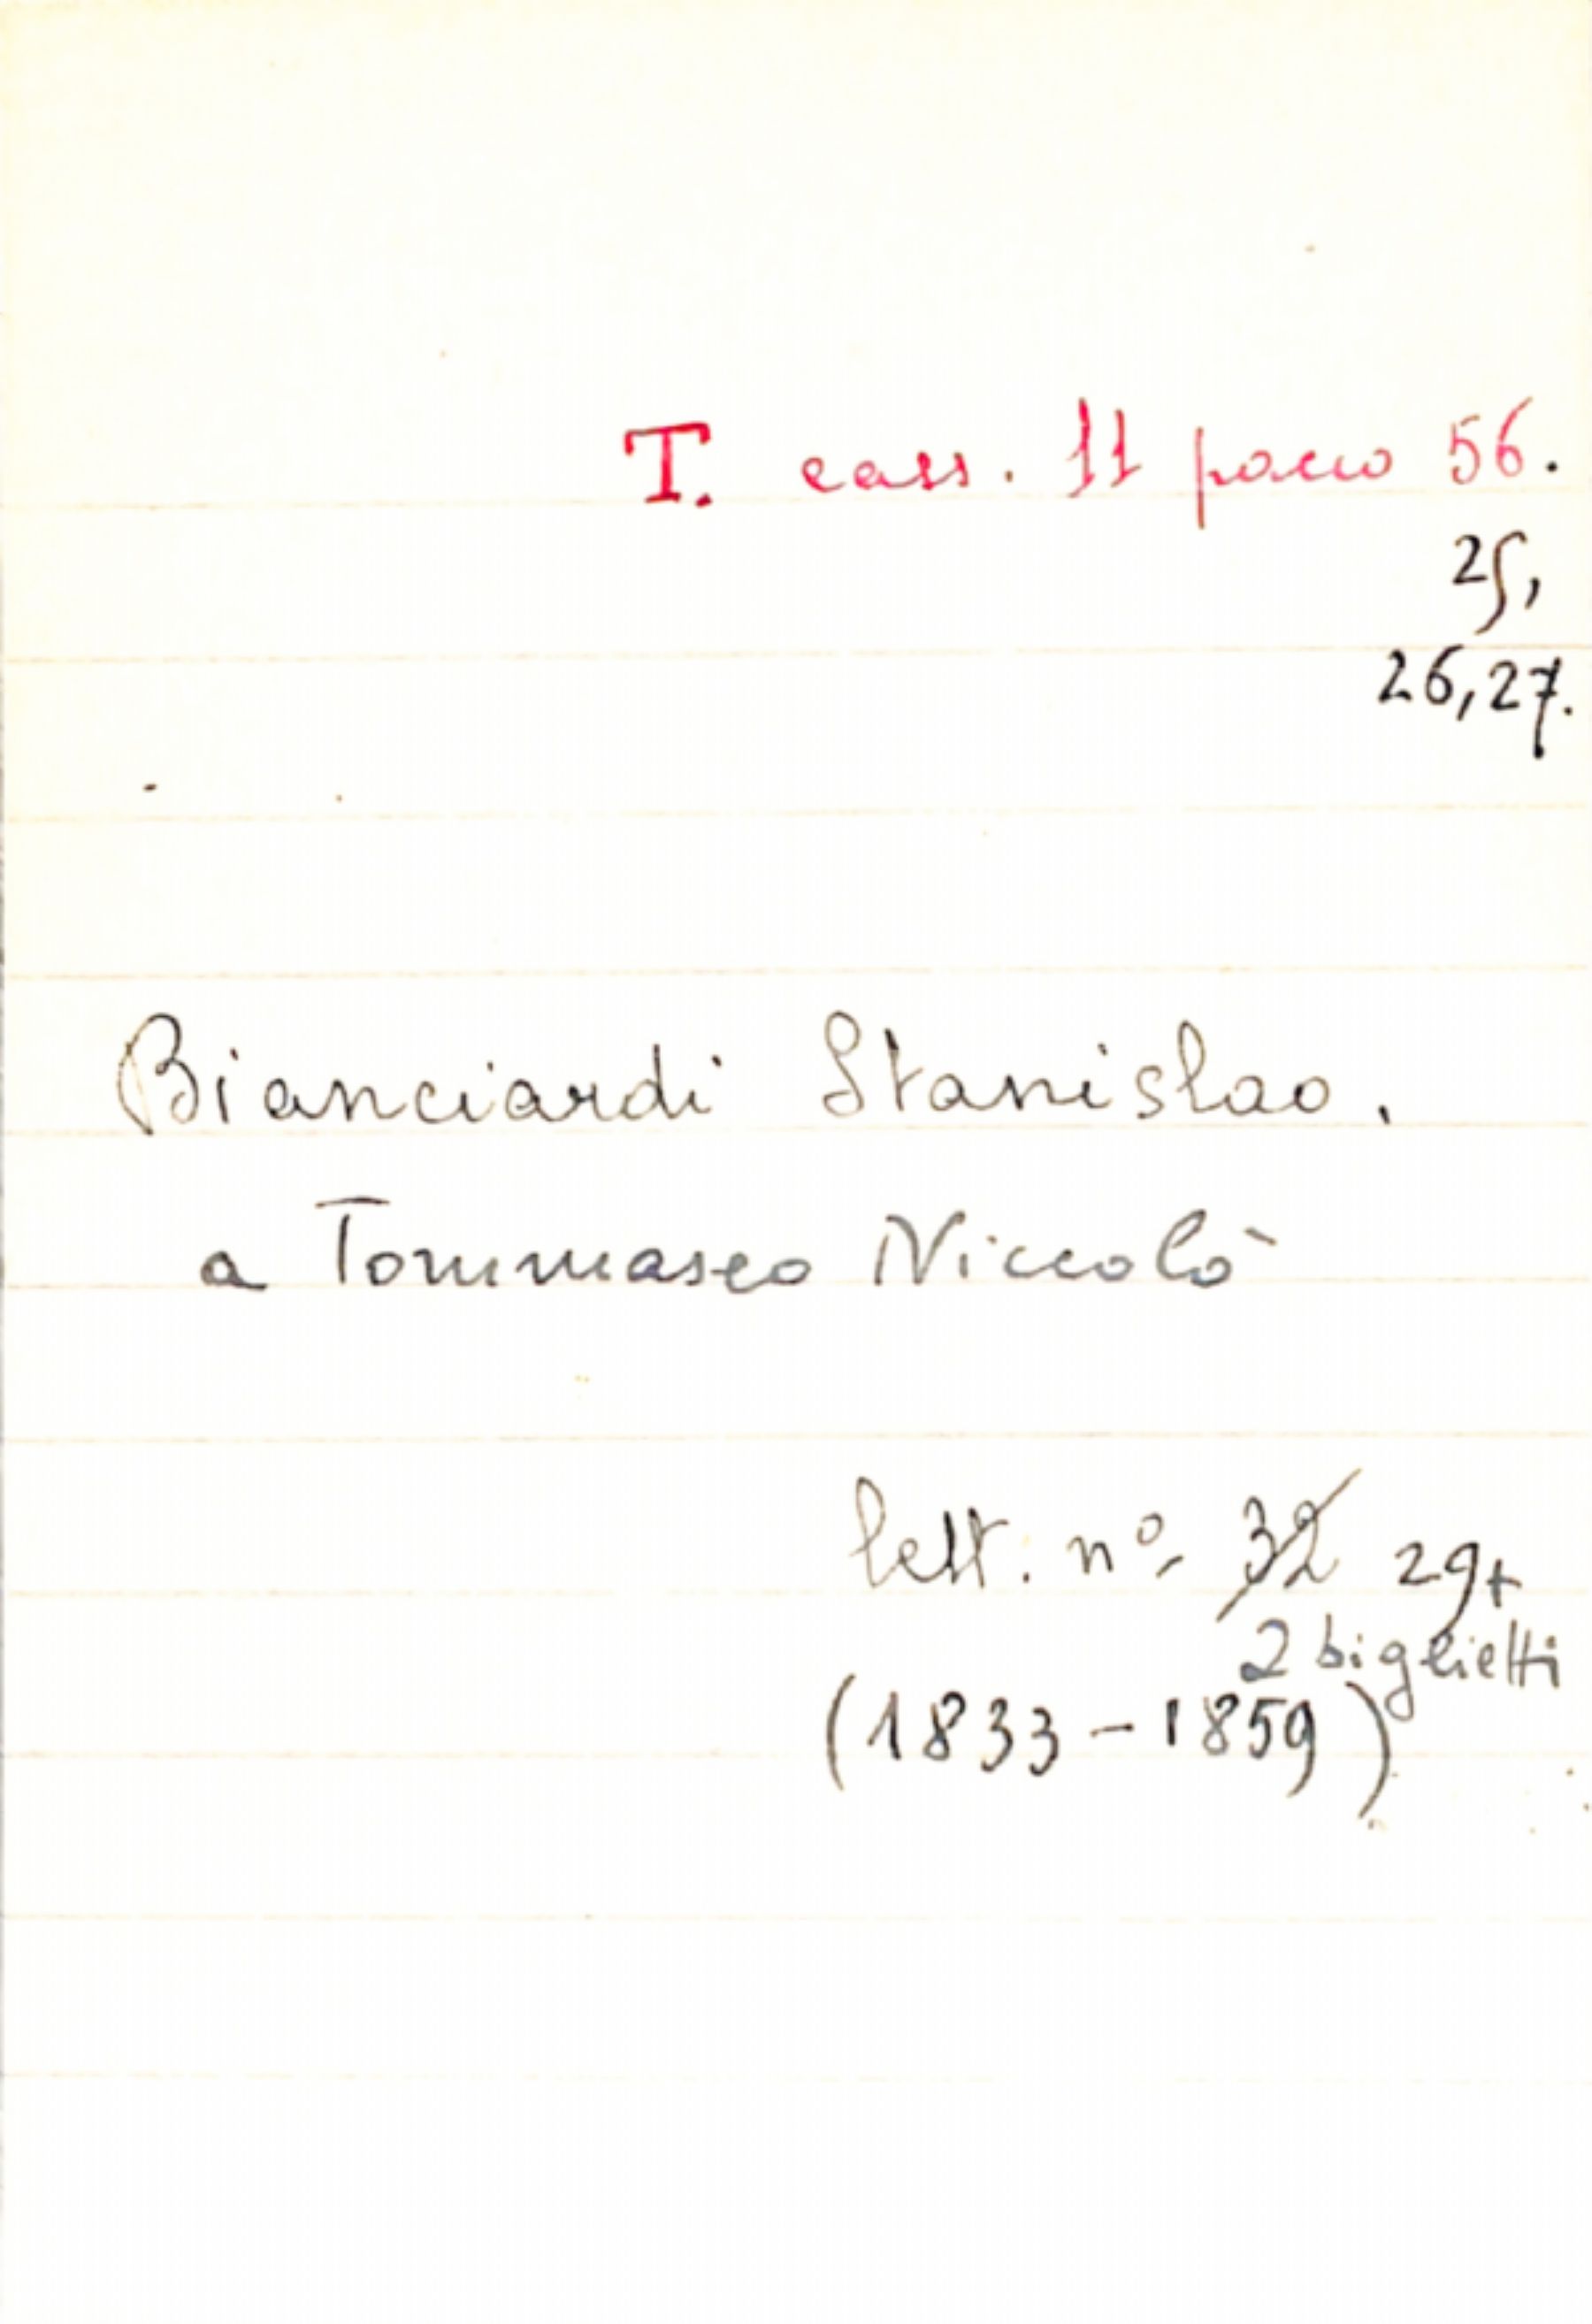 T. cass. 11 pacco 56.
25,
26,27.
Bianciardi Stanislao.
a Tommaseo Niccolò
lett. nº 32 29+
2 biglietti
(1833-1859)